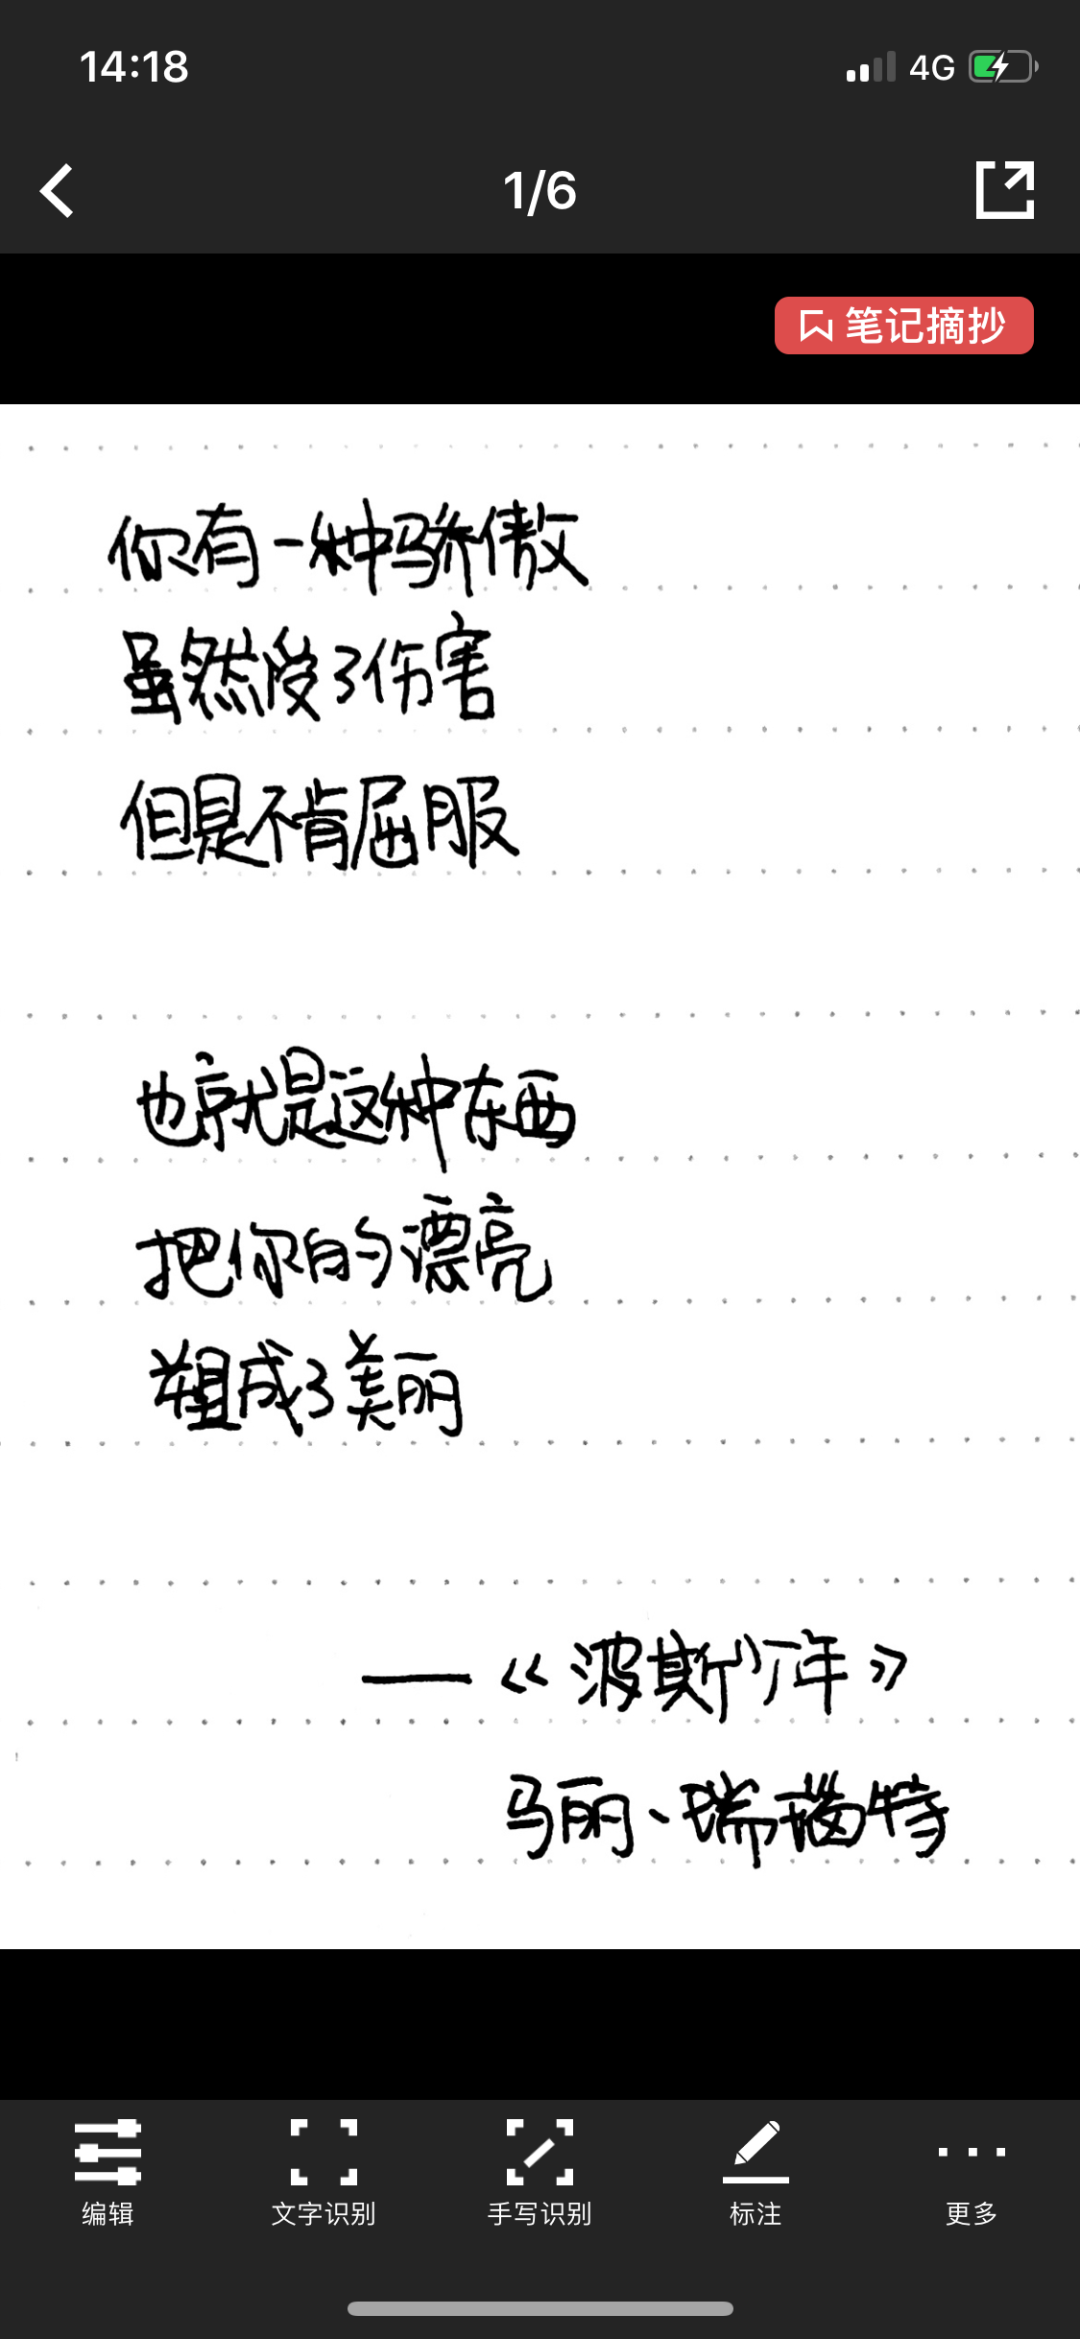 14:18
4G
1/6
笔记摘抄
你有一种骄傲
虽然受了伤害
但是不肯屈服
也就是这种东西
把你的漂亮
塑成了美丽
——《波斯少年》
马丽、瑞瑙特
编辑
文字识别
手写识别
标注
更多